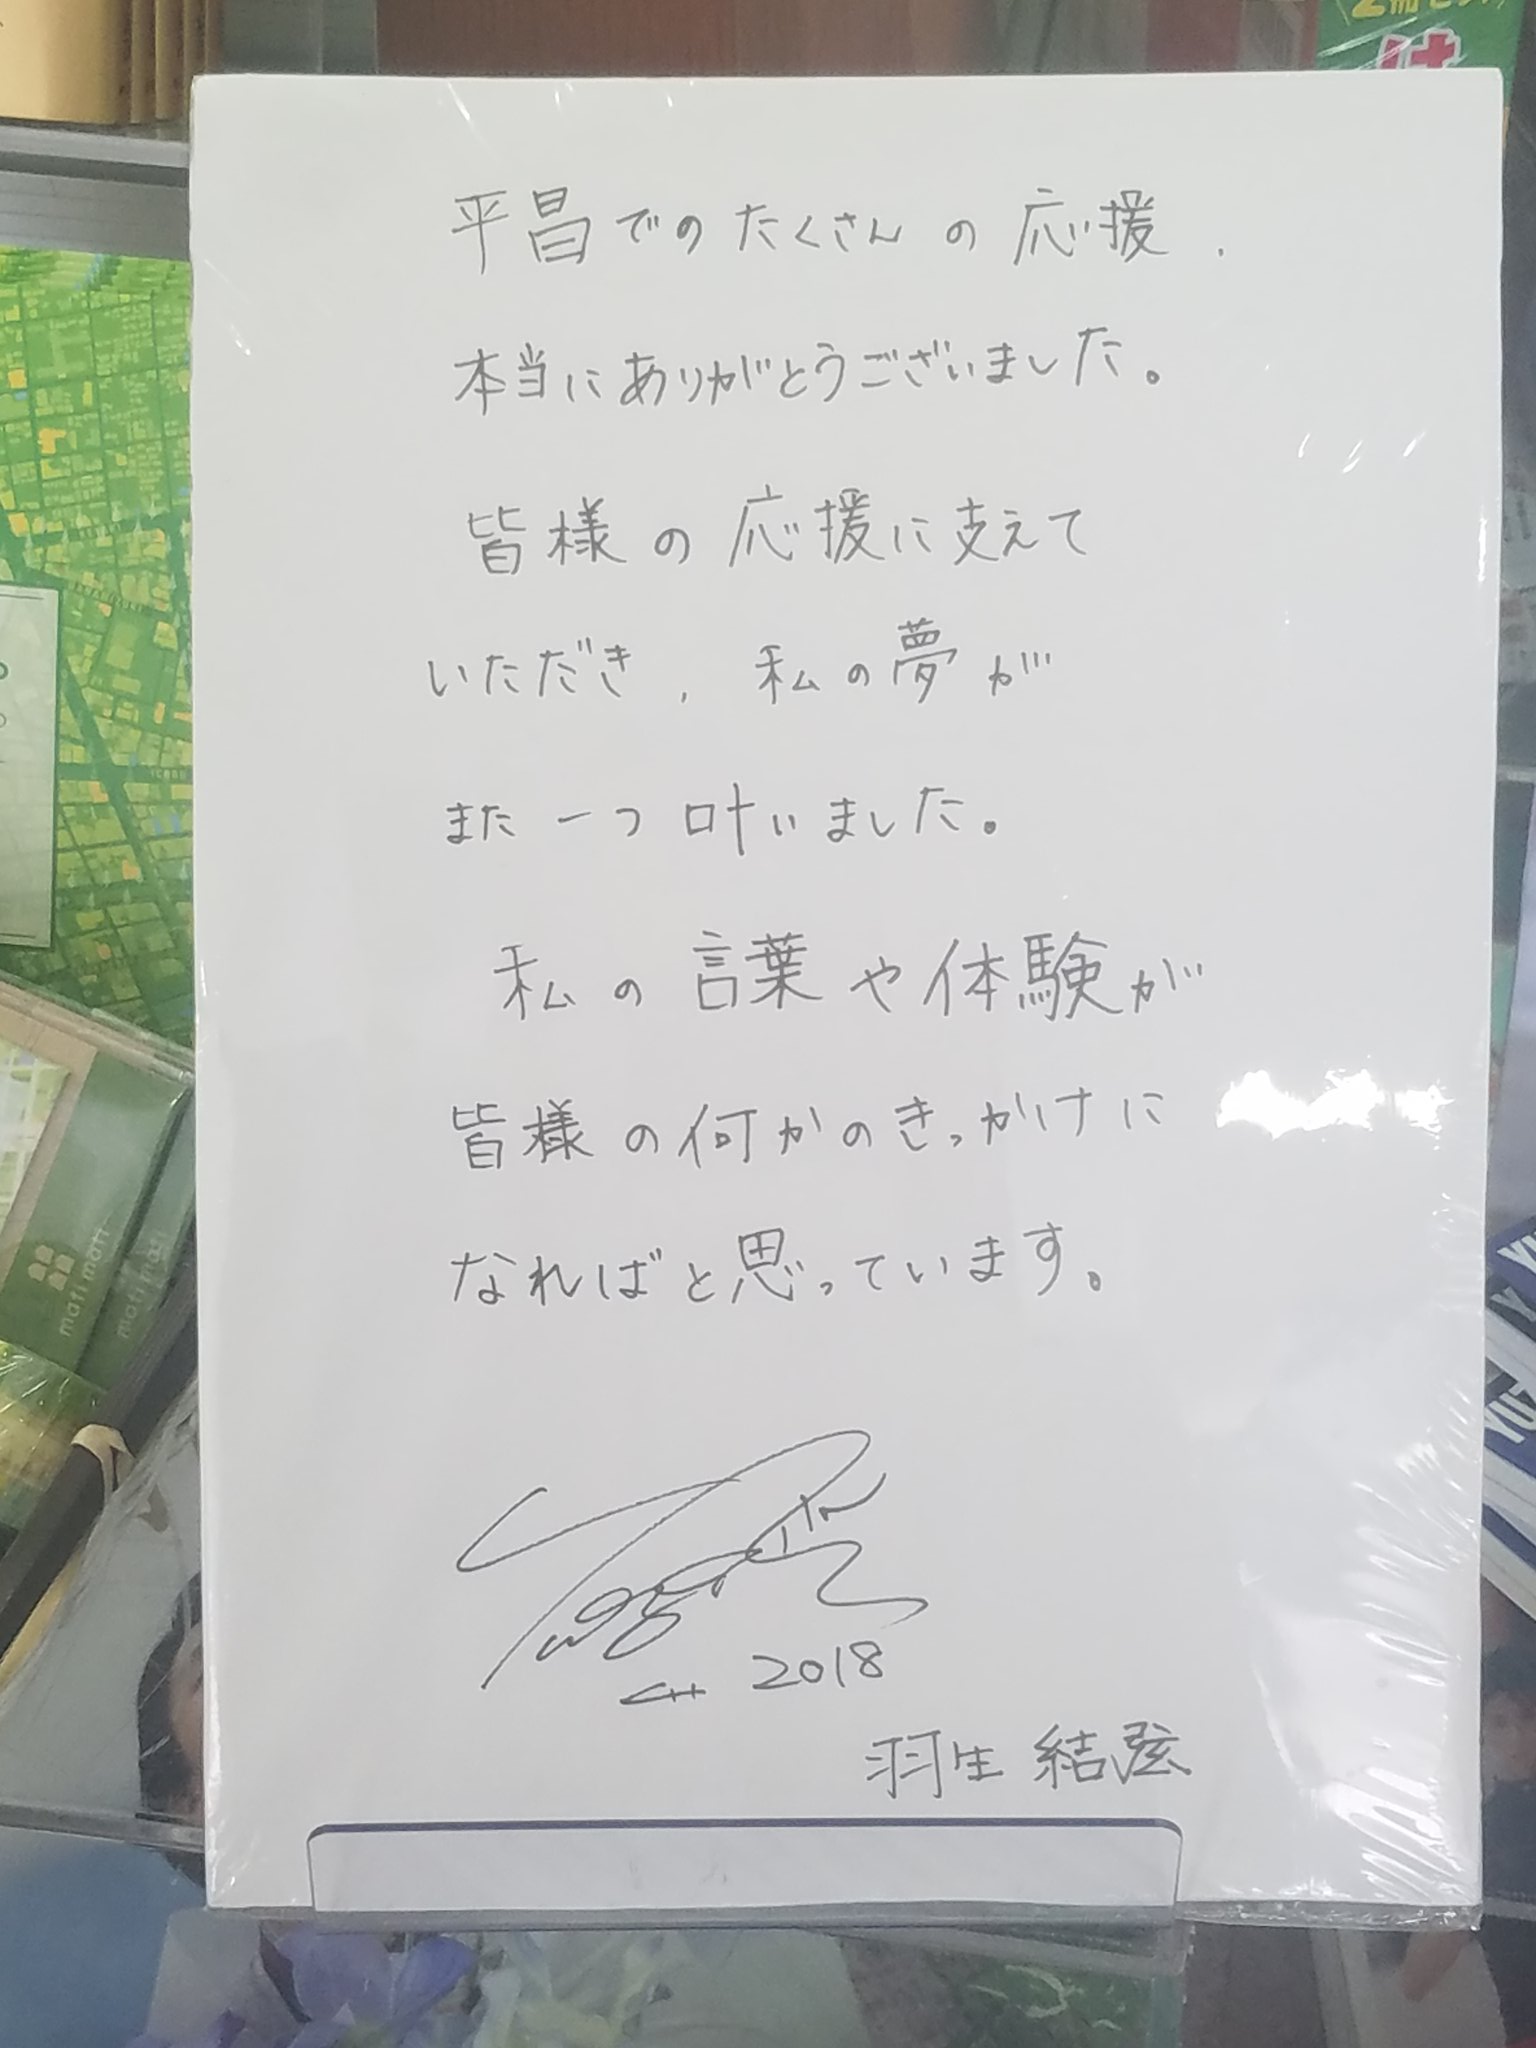 平昌でのたくさんの応援、
本当にありがとうございました。
皆様の応援に支えて
いただき、私の夢が
また一つ叶いました。
私の言葉や体験が
皆様の何かのきっかけに
なればと思っています。
2018
羽生 結弦
mati mati
mati mati